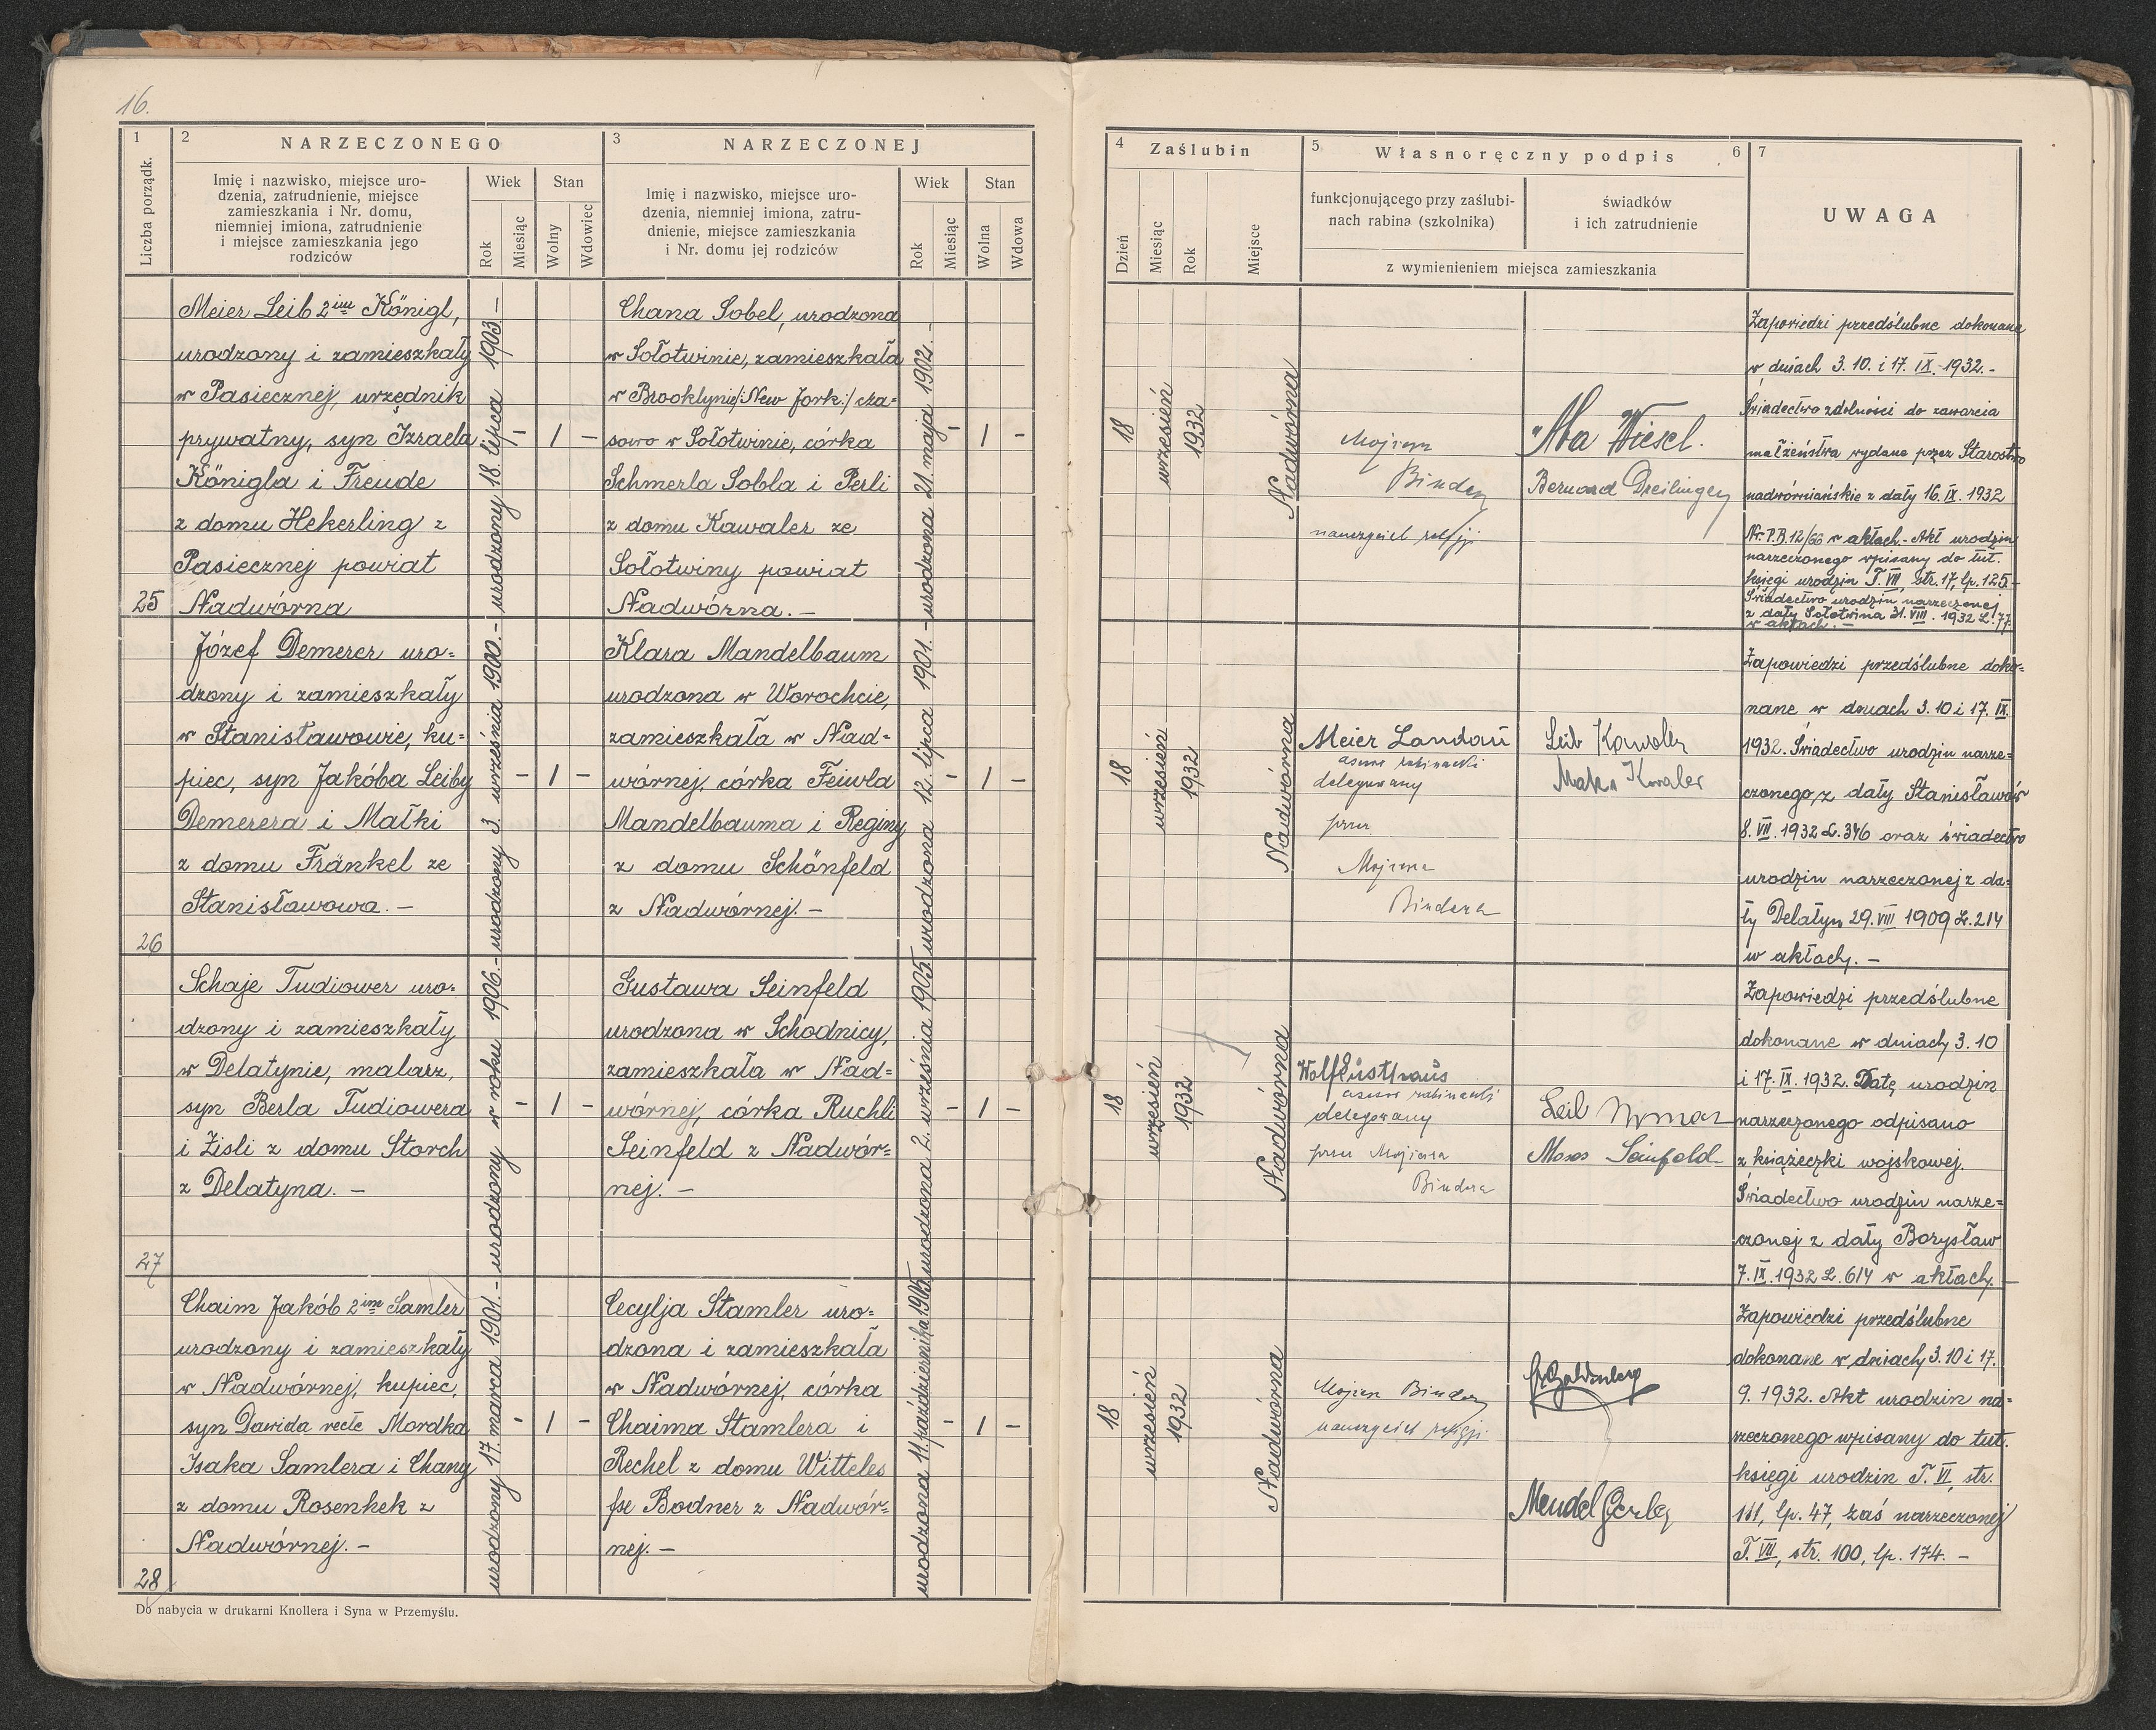 16.
1
2
NARZECZONEGO
3
NARZECZONEJ
Liczba porządk.
Imię i nazwisko, miejsce uro-
dzenia, zatrudnienie, miejsce
zamieszkania i Nr. domu,
niemniej imiona, zatrudnienie
i miejsce zamieszkania jego
rodziców
Wiek
Stan
Rok
Miesiąc
Wolny
Wdowiec
Imię i nazwisko, miejsce uro-
dzenia, niemniej imiona, zatru-
dnienie, miejsce zamieszkania
i Nr. domu jej rodziców
Wiek
Stan
Rok
Miesiąc
Wolna
Wdowa
4
Zaślubin
5
Własnoręczny podpis
6
7
Dzień
Miesiąc
Rok
Miejsce
funkcjonującego przy zaślubi-
nach rabina (szkolnika)
świadków
i ich zatrudnienie
z wymienieniem miejsca zamieszkania
UWAGA
25
Meier Leib 2im Königl,
urodzony i zamieszkały
w Pasiecznej, urzędnik
prywatny, syn Izraela
Königla i Freude
z domu Hekerling z
Pasiecznej powiat
Nadwórna
urodzony 18. lipca 1903 –
- 1 -
Chana Sobel, urodzona
w Sołotwinie, zamieszkała
w Brooklynie/:New Jork:/ cza=
sowo w Sołotwinie, córka
Schmerla Sobla i Perli
z domu Kawaler ze
Sołotwiny powiat
Nadwórna. –
urodzona 21. maja 1902. –
- 1 -
18
wrzesień
1932
Nadwórna
Mojżesz
Binder
nauczyciel religji
Aba Wiesel.
Bernard Dreilinger
Zapowiedzi przedślubne dokonane
w dniach 3. 10. i 17. IX. 1932. –
Świadectwo zdolności do zawarcia
małżeństwa wydane przez Starostwo
nadwórniańskie z daty 16. IX. 1932
Nr. P.B. 12/66 w aktach. – Akt urodzin
narzeczonego wpisany do tut.
księgi urodzin T. VII, str. 17, lp. 125. –
Świadectwo urodzin narzeczonej
z daty Sołotwina 31. VIII. 1932 L. 77.
w aktach. –
26
Józef Demerer uro=
dzony i zamieszkały
w Stanisławowie, ku=
piec, syn Jakóba Leiby
Demerera i Małki
z domu Fränkel ze
Stanisławowa. –
urodzony 3. września 1900. –
- 1 -
Klara Mandelbaum
urodzona w Worochcie,
zamieszkała w Nad=
wórnej, córka Feiwla
Mandelbauma i Reginy
z domu Schönfeld
z Nadwórnej. –
urodzona 12. lipca 1901. –
- 1 -
18
wrzesień
1932
Nadwórna
Meier Landau
asesor rabinacki
delegowany
przez
Mojżesza
Bindera
Leib Kawaler
Kawaler
Zapowiedzi przedślubne doko=
nane w dniach 3. 10 i 17. IX.
1932. Świadectwo urodzin narze=
czonego z daty Stanisławów
8. VII. 1932 L. 346 oraz świadectwo
urodzin narzeczonej z da=
ty Delatyn 29. VIII 1909 L. 214
w aktach. –
27
Schaje Tudiower uro=
dzony i zamieszkały
w Delatynie, malarz,
syn Berla Tudiowera
i Zisli z domu Storch
z Delatyna. –
urodzony w roku 1906. –
- 1 -
Gustawa Seinfeld
urodzona w Schodnicy,
zamieszkała w Nad=
wórnej, córka Ruchli
Seinfeld z Nadwór=
nej. –
urodzona 2. września 1905.
- 1 -
18
wrzesień
1932
Nadwórna
Wolf Lusthaus
asesor rabinacki
delegowany
przez Mojżesza
Bindera
Leib
Moses Seinfeld
Zapowiedzi przedślubne
dokonane w dniach 3. 10
i 17. IX. 1932. Datę urodzin
narzeczonego odpisano
z książeczki wojskowej.
Świadectwo urodzin narze=
czonej z daty Borysław
7. IX. 1932 L. 614 w aktach. –
28
Chaim Jakób 2im Samler
urodzony i zamieszkały
w Nadwórnej, kupiec,
syn Dawida recte Mordka
Isaka Samlera i Chany
z domu Rosenhek z
Nadwórnej. –
urodzony 17. marca 1901. –
- 1 -
Cecylja Stamler uro=
dzona i zamieszkała
w Nadwórnej, córka
Chaima Stamlera i
Rechel z domu Witteles
fse Bodner z Nadwór=
nej. –
urodzona 11. października 1905
- 1 -
18
wrzesień
1932
Nadwórna
Mojżesz Binder
nauczyciel religji
Mendel Gerler
Zapowiedzi przedślubne
dokonane w dniach 3. 10 i 17.
9. 1932. Akt urodzin na=
rzeczonego wpisany do tut.
księgi urodzin T. VI, str.
111, lp. 47, zaś narzeczonej
T. VII, str. 100, lp. 174. –
Do nabycia w drukarni Knollera i Syna w Przemyślu.